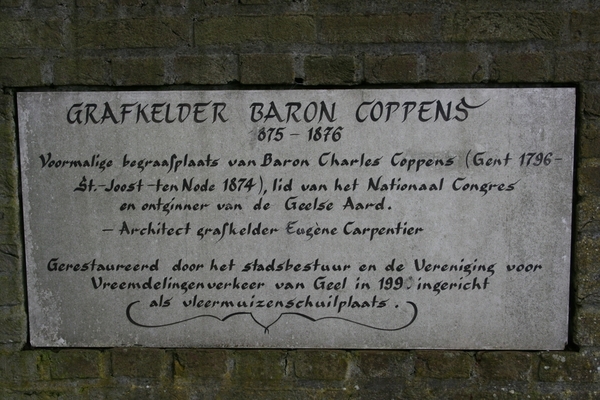 GRAFKELDER BARON COPPENS
875 - 1876
Voormalige begraafplaats van Baron Charles Coppens (Gent 1796-
St.-Joost-ten Node 1874), lid van het Nationaal Congres
en ontginner van de Geelse Aard.
- Architect grafkelder Eugène Carpentier
Gerestaureerd door het stadsbestuur en de Vereniging voor
Vreemdelingenverkeer van Geel in 199 ingericht
als vleermuizenschuilplaats.